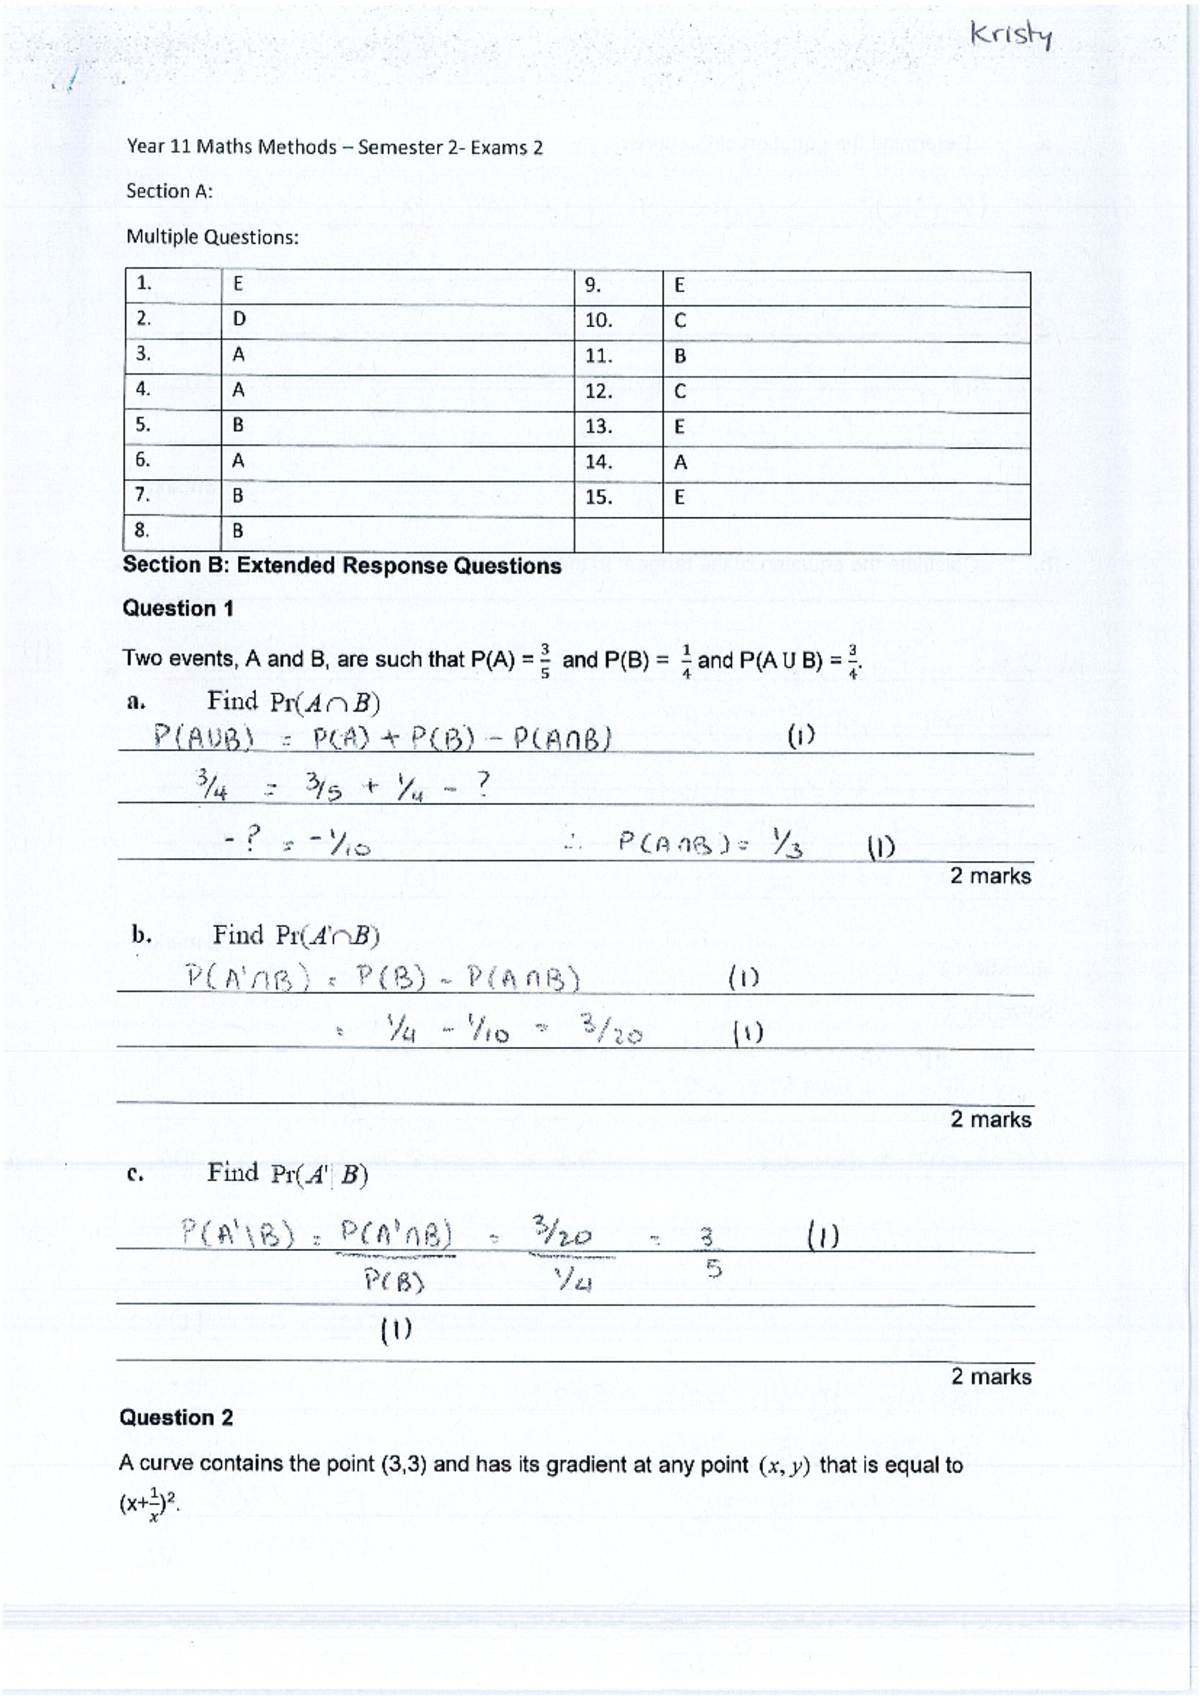 Kristy
Year 11 Maths Methods – Semester 2- Exams 2
Section A:
Multiple Questions:
1. E 9. E
2. D 10. C
3. A 11. B
4. A 12. C
5. B 13. E
6. A 14. A
7. B 15. E
8. B
Section B: Extended Response Questions
Question 1
Two events, A and B, are such that P(A) = 3/5 and P(B) = 1/4 and P(A U B) = 3/4.
a. Find Pr(A∩B)
P(A∪B) = P(A) + P(B) - P(A∩B) (1)
3/4 = 3/5 + 1/4 - ?
- ? = - 1/10 ∴ P(A∩B) = 1/3 (1)
2 marks
b. Find Pr(A'∩B)
P(A'∩B) = P(B) - P(A∩B) (1)
= 1/4 - 1/10 = 3/20 (1)
2 marks
c. Find Pr(A'| B)
P(A'\B) = P(A'∩B) = 3/20 = 3 (1)
P(B) 1/4 5
(1)
2 marks
Question 2
A curve contains the point (3,3) and has its gradient at any point (x, y) that is equal to
(x+1/x)².